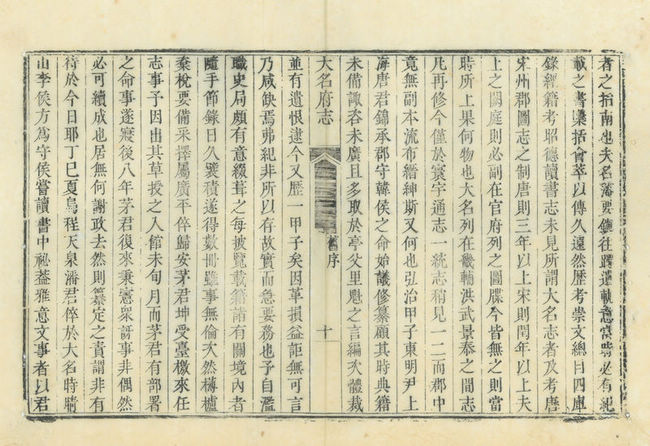 者之指南也大名藩要鎮往蹟遺軌意當時必有紀
載之書槩括會萃以傳久遠然歷考崇文總目四庫
錄經籍考昭德讀書志未見所謂大名志者及考唐
宋州郡圖志之制唐則三年以上宋則閏年以上夫
上之闕庭則必副在官府列之圖牒今皆無之則當
時所上果何物也大名列在畿輔洪武景泰之間志
凡再修今僅於寰宇通志一統志稍見一二而郡中
竟無副本流布縉紳斯又何也弘治甲子東明尹上
海唐君錦承郡守韓侯之命始議修纂顧其時典籍
未備諏咨未廣且多取於亭父里魁之言編次體裁
大名府志 舊序 十
並有遺恨逮今又歷一甲子矣因革損益詎無可言
乃咸缺焉弗紀非所以存故實而急要務也予自濫
職史局頗有意綴葺之每披覽載籍諸有關境內者
隨手節錄日久襞積遂得數冊雖事無倫次然欂櫨
梲要備采擇屬廣平倅歸安茅君坤受臺檄來任
志事予因出其草授之人館未旬月而茅君有部署
之命事遂寢後八年茅君復來秉憲衆謂事非偶然
必可續成也居無何謝政去然則纂定之責謂非有
待於今日耶丁巳夏烏程天泉潘君倅於大名時晴
山李侯方為守侯嘗讀書中祕葢雅意文事者以君